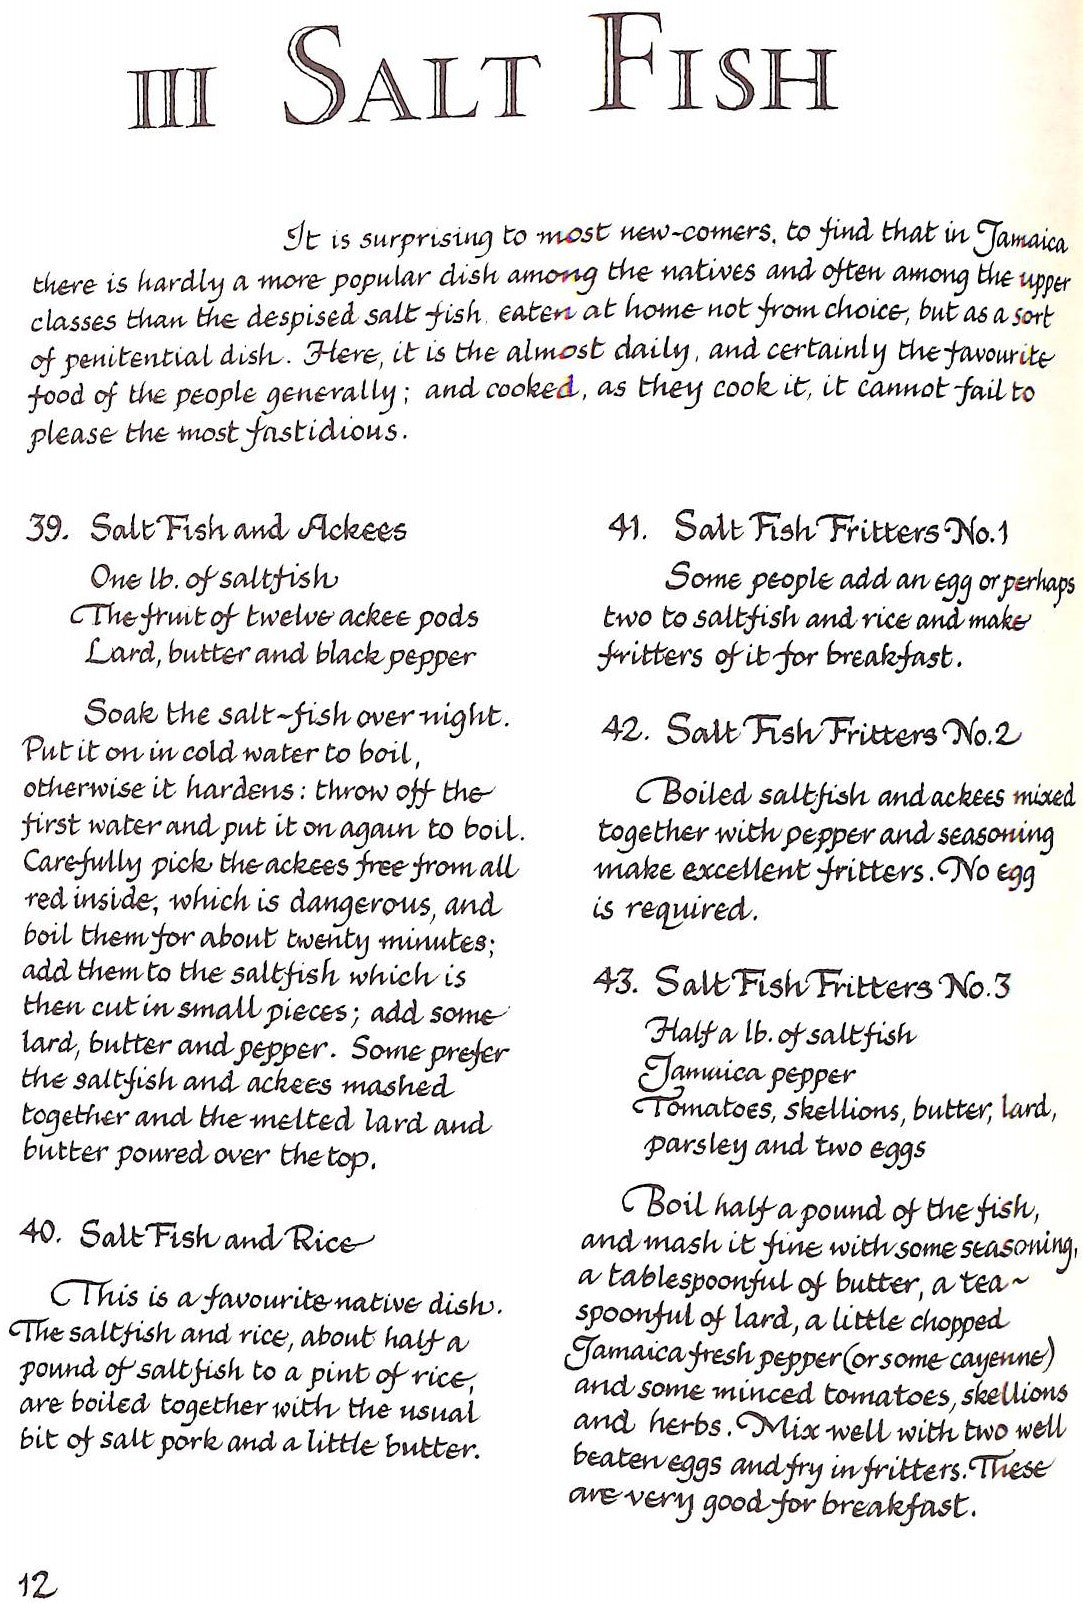 III SALT FISH
It is surprising to most new-comers, to find that in Jamaica
there is hardly a more popular dish among the natives and often among the upper
classes than the despised salt fish eaten at home not from choice, but as a sort
of penitential dish. Here, it is the almost daily, and certainly the favourite
food of the people generally; and cooked, as they cook it, it cannot fail to
please the most fastidious.
39. Salt Fish and Ackees
One lb. of saltfish
The fruit of twelve ackee pods
Lard, butter and black pepper
Soak the salt-fish over night.
Put it on in cold water to boil,
otherwise it hardens: throw off the
first water and put it on again to boil.
Carefully pick the ackees free from all
red inside, which is dangerous, and
boil them for about twenty minutes;
add them to the saltfish which is
then cut in small pieces; add some
lard, butter and pepper. Some prefer
the saltfish and ackees mashed
together and the melted lard and
butter poured over the top.
40. Salt Fish and Rice
This is a favourite native dish.
The saltfish and rice, about half a
pound of saltfish to a pint of rice,
are boiled together with the usual
bit of salt pork and a little butter.
41. Salt Fish Fritters No.1
Some people add an egg or perhaps
two to saltfish and rice and make
fritters of it for breakfast.
42. Salt Fish Fritters No.2
Boiled saltfish and ackees mixed
together with pepper and seasoning
make excellent fritters. No egg
is required.
43. Salt Fish Fritters No.3
Half a lb. of saltfish
Jamaica pepper
Tomatoes, skellions, butter, lard,
parsley and two eggs
Boil half a pound of the fish,
and mash it fine with some seasoning,
a tablespoonful of butter, a tea-
spoonful of lard, a little chopped
Jamaica fresh pepper (or some cayenne)
and some minced tomatoes, skellions
and herbs. Mix well with two well
beaten eggs and fry in fritters. These
are very good for breakfast.
12